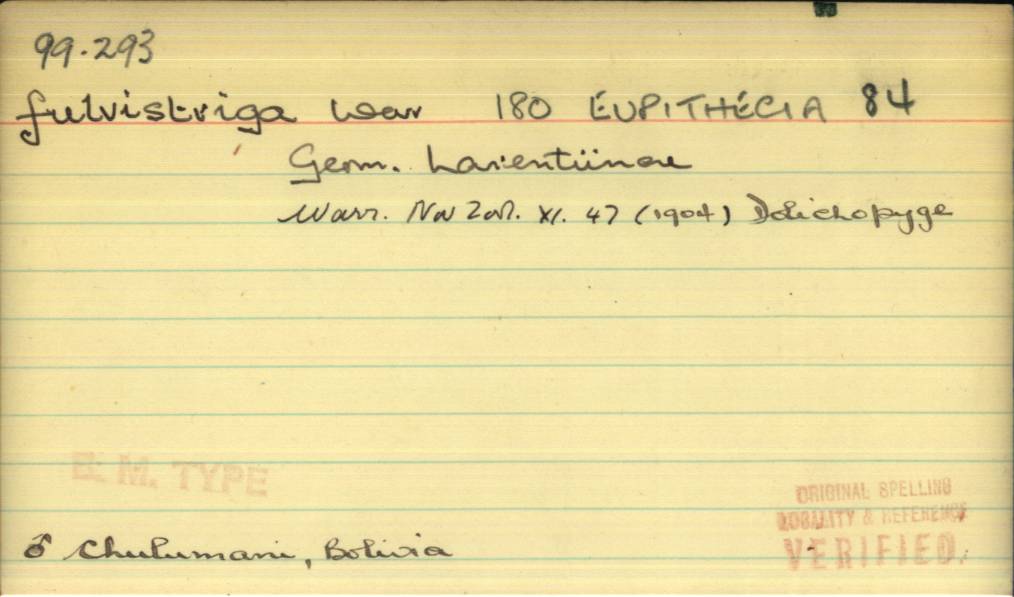 99.293
fulvistriga War 180 EUPITHECIA 84
Geom. Larentiinae
Warr. Nov Zool. XI. 47 (1904) Dolichopyge
B. M. TYPE
ORIGINAL SPELLING
LOCALITY & REFERENCE
VERIFIED.
♂ Chulumani, Bolivia